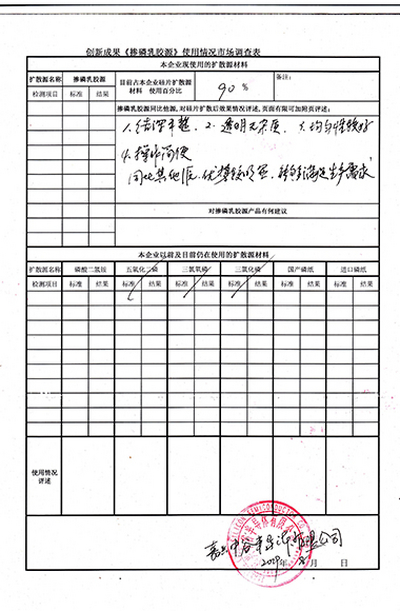 创新成果《掺磷乳胶源》使用情况市场调查表
本企业现使用的扩散源材料
扩散源名称 掺磷乳胶源 目前占本企业硅片扩散源材料 使用百分比 90% 备注:
检测项目 标准 结果
掺磷乳胶源同比他源,对硅片扩散后效果情况评述,页面有限可加附页评述:
1. 结深平整、 2. 透明无杂质、 3. 均匀性较好
4. 操作简便
同比其他源、优势较明显,
对掺磷乳胶源产品有何建议
本企业以前及目前仍在使用的扩散源材料
扩散源名称 磷酸二氢铵 五氧化二磷 三氯氧磷 三氯化磷 国产磷纸 进口磷纸
检测项目 标准 结果 标准 结果 标准 结果 标准 结果 标准 结果 标准 结果
使用情况评述
半导体有限公司
2009年 月 日